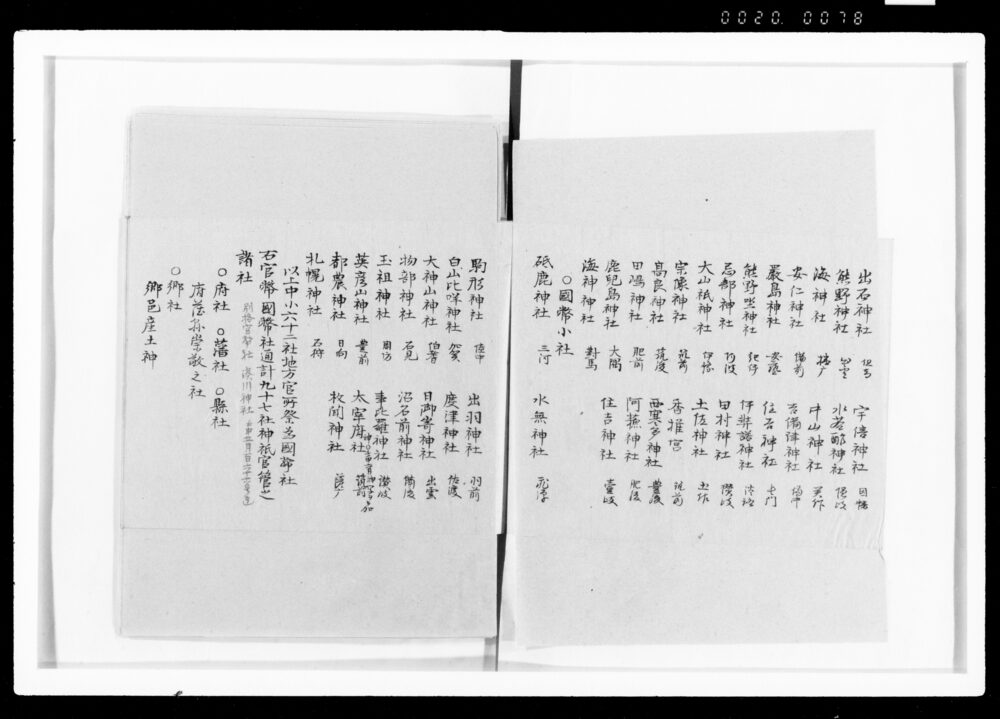 0020 0078
出石神社 但馬 宇倍神社 因幡
熊野神社 出雲 水若酢神社 隠岐
海神社 播广 中山神社 美作
安仁神社 備前 吉備津神社 備中
嚴島神社 安藝 住吉神社 長門
熊野坐神社 紀伊 伊弉諾神社 淡路
忌部神社 阿波 田村神社 讃岐
大山祇神社 伊豫 土佐神社 土佐
宗像神社 筑前 香椎宮 筑前
高良神社 筑後 西寒多神社 豊後
田嶋神社 肥前 阿蘇神社 肥後
鹿児島神社 大隅 住吉神社 壹岐
海神神社 對馬
○國幣小社
砥鹿神社 三河 水無神社 飛騨
駒形神社 陸中 出羽神社 羽前
白山比咩神社 加賀 度津神社 佐渡
大神山神社 伯耆 日御﨑神社 出雲
物部神社 石見 沼名前神社 備後
玉祖神社 周防 事比羅神社 讃岐
英彦山神社 豊前 太宰府神社 筑前
都農神社 日向 枚聞神社 薩广
札幌神社 石狩
以上中小六十二社地方官所祭為國幣社
右官幣國幣社通計九十七社神祇官管之
諸社 別格官幣社 湊川神社
○府社 ○藩社 ○縣社
府藩縣崇敬之社
○郷社
郷邑産土神